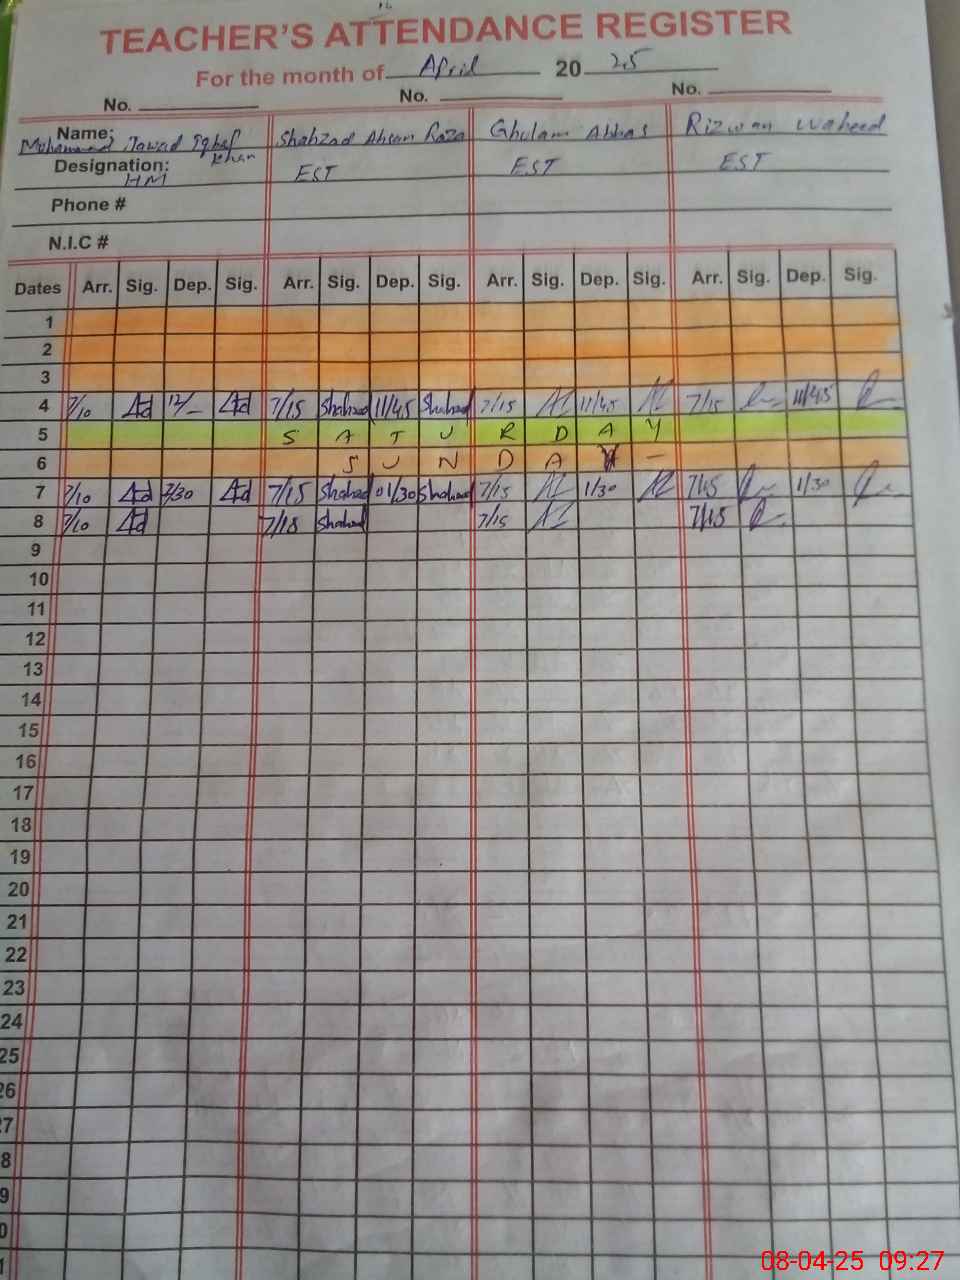 TEACHER'S ATTENDANCE REGISTER
For the month of April 20 25
No. No. No.
Name: Mohammad Jawad Iqbal Khan Shahzad Ahsan Raza Ghulam Abbas Rizwan Waheed
Designation: HM EST EST EST
Phone #
N.I.C #
Dates Arr. Sig. Dep. Sig. Arr. Sig. Dep. Sig. Arr. Sig. Dep. Sig. Arr. Sig. Dep. Sig.
1
2
3
4 7/10 12/- 7/15 Shahzad 11/45 Shahzad 7/15 11/45 7/15 11/45
5 S A T U R D A Y
6 S U N D A Y -
7 7/10 2/30 7/15 Shahzad 01/30 Shahzad 7/15 1/30 7/15 1/30
8 7/10 7/15 Shahzad 7/15 7/15
9
10
11
12
13
14
15
16
17
18
19
20
21
22
23
24
25
26
7
8
9
0
1
08-04-25 09:27